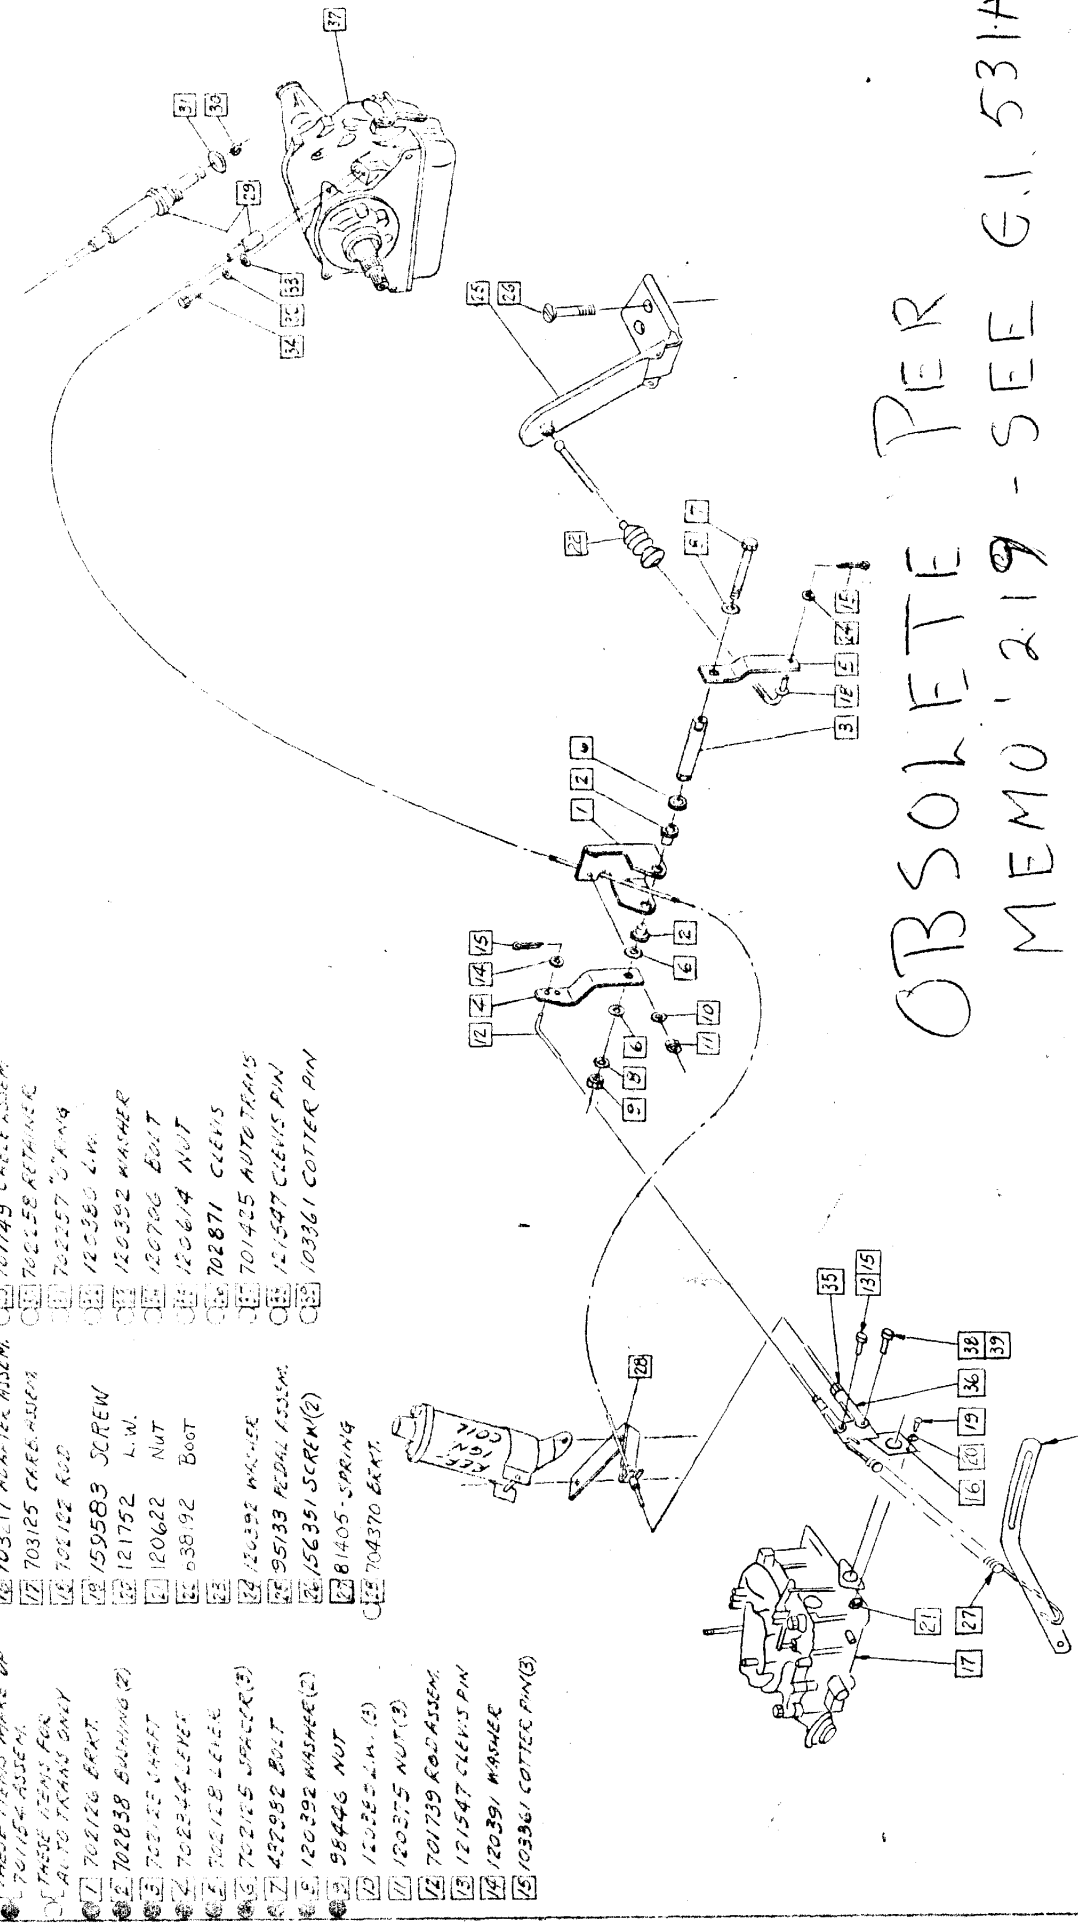 701154 ASSEM.
THESE ITEMS FOR
AUTO TRANS ONLY
1 702126 BRKT.
2 702838 BUSHING(2)
3 702125 SHAFT
4 702344 LEVER
5 702128 LEVER
6 702125 SPACER(3)
7 432982 BOLT
8 120392 WASHER(2)
9 98446 NUT
10 120380 L.W. (3)
11 120375 NUT(3)
12 701739 ROD ASSEM.
13 121547 CLEVIS PIN
14 120391 WASHER
15 103361 COTTER PIN(3)
17 703125 CARB. ASSEM.
18 702122 ROD
19 159583 SCREW
20 121752 L.W.
21 120622 NUT
22 BOOT
23
24 120392 WASHER
25 95133 PEDAL ASSEM.
26 156351 SCREW(2)
27 81405-SPRING
28 704370 BRKT.
30 702258 RETAINER
31 702257 "O" RING
32 120380 L.W.
33 120392 WASHER
34 120706 BOLT
35 120614 NUT
36 702871 CLEVIS
37 701425 AUTO TRANS
38 121547 CLEVIS PIN
39 103361 COTTER PIN
REF.
IGN
COIL
37
31
30
29
33
34
25
26
22
8
7
15
24
5
18
3
6
2
1
15
14
4
12
2
6
10
11
6
8
9
28
35
13 15
38
39
36
19
20
16
21
27
17
OBSOLETE PER
MEMO 219 - SEE G.I. 531-A